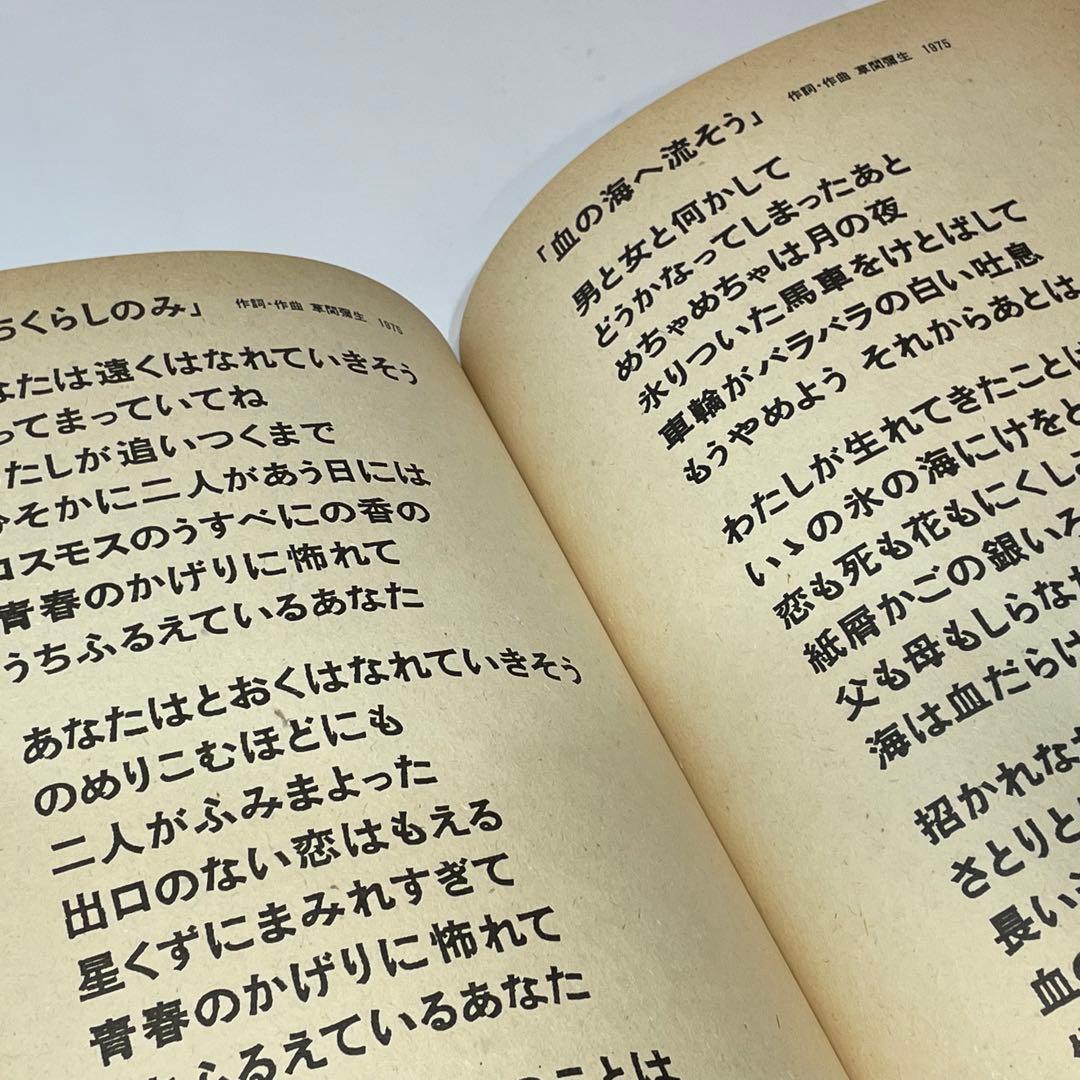 らくらしのみ」 作詞・作曲 草間彌生 1975
なたは遠くはなれていきそう
ってまっていてね
たしが追いつくまで
そかに二人があう日には
コスモスのうすべにの香の
青春のかげりに怖れて
うちふるえているあなた
あなたはとおくはなれていきそう
のめりこむほどにも
二人がふみまよった
出口のない恋はもえる
星くずにまみれすぎて
青春のかげりに怖れて
ふるえているあなた
のことは
「血の海へ流そう」 作詞・作曲 草間彌生 1975
男と女と何かして
どうかなってしまったあと
めちゃめちゃは月の夜
氷りついた馬車をけとばして
車輪がバラバラの白い吐息
もうやめよう それからあとは
わたしが生れてきたことは
いゝの氷の海にけをと
恋も死も花もにくしみ
紙屑かごの銀いろ
父も母もしらな
海は血だらけ
招かれな
さとりと
長い
血の